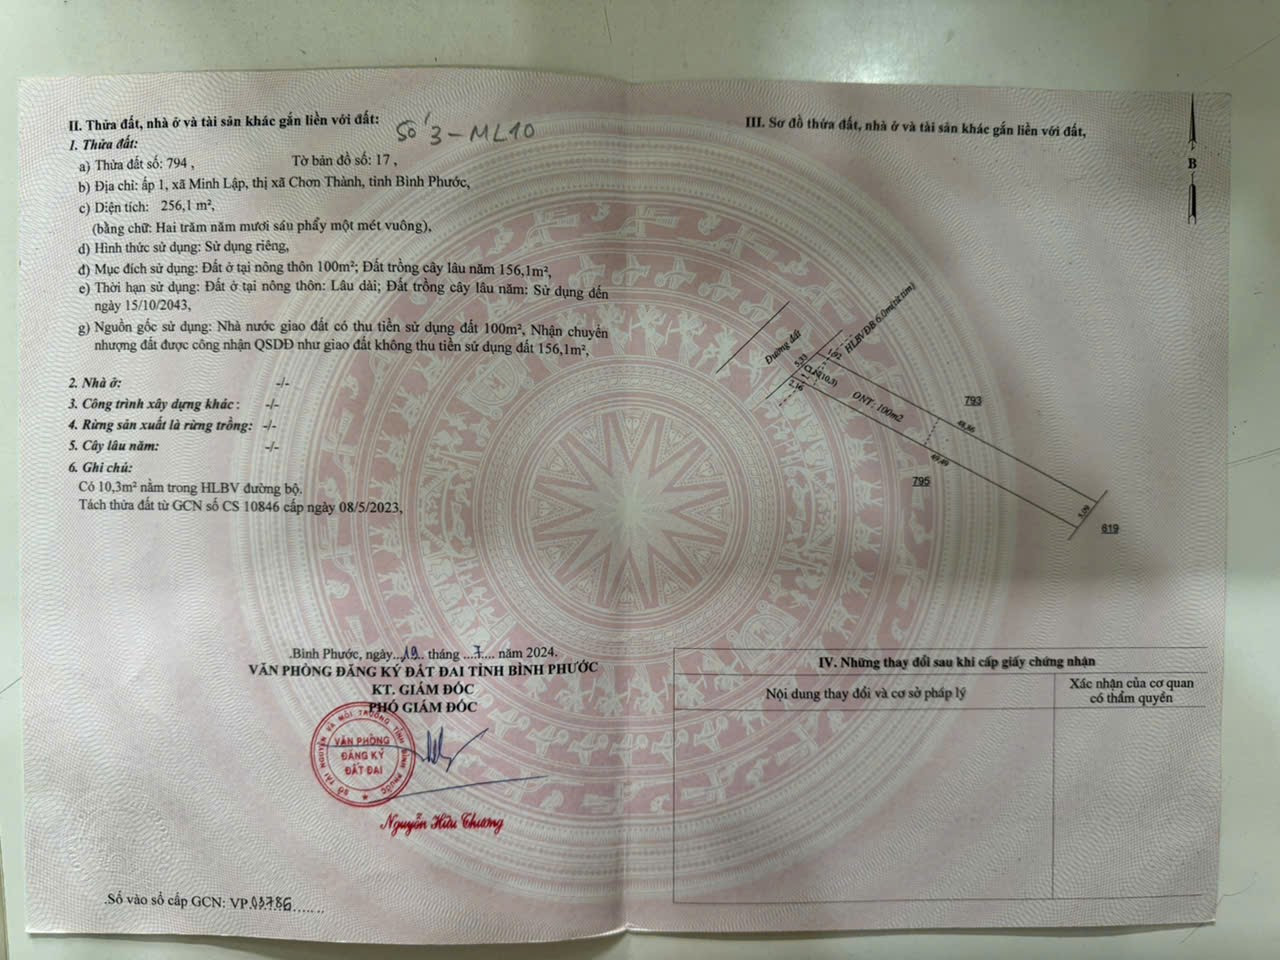 II. Thửa đất, nhà ở và tài sản khác gắn liền với đất:
Số 3 - ML10
1. Thửa đất:
a) Thửa đất số: 794 , Tờ bản đồ số: 17 ,
b) Địa chỉ: ấp 1, xã Minh Lập, thị xã Chơn Thành, tỉnh Bình Phước,
c) Diện tích: 256,1 m²,
(bằng chữ: Hai trăm năm mươi sáu phẩy một mét vuông),
d) Hình thức sử dụng: Sử dụng riêng,
đ) Mục đích sử dụng: Đất ở tại nông thôn 100m²; Đất trồng cây lâu năm 156,1m²,
e) Thời hạn sử dụng: Đất ở tại nông thôn: Lâu dài; Đất trồng cây lâu năm: Sử dụng đến
ngày 15/10/2043,
g) Nguồn gốc sử dụng: Nhà nước giao đất có thu tiền sử dụng đất 100m², Nhận chuyển
nhượng đất được công nhận QSDĐ như giao đất không thu tiền sử dụng đất 156,1m²,
2. Nhà ở: -/-
3. Công trình xây dựng khác : -/-
4. Rừng sản xuất là rừng trồng: -/-
5. Cây lâu năm: -/-
6. Ghi chú:
Có 10,3m² nằm trong HLBV đường bộ.
Tách thửa đất từ GCN số CS 10846 cấp ngày 08/5/2023,
.Bình Phước, ngày..19.. tháng ...7... năm 2024.
VĂN PHÒNG ĐĂNG KÝ ĐẤT ĐAI TỈNH BÌNH PHƯỚC
KT. GIÁM ĐỐC
PHÓ GIÁM ĐỐC
SỞ TÀI NGUYÊN VÀ MÔI TRƯỜNG TỈNH BÌNH PHƯỚC
VĂN PHÒNG
ĐĂNG KÝ
ĐẤT ĐAI
Nguyễn Hữu Thương
.Số vào sổ cấp GCN: VP.03786
III. Sơ đồ thửa đất, nhà ở và tài sản khác gắn liền với đất,
B
Đường đất
HLBVĐB 6.0m(từ tim)
5,33
1,92
CLN(10,3)
2,16
ONT: 100m2
793
48,86
49,49
795
5,09
619
IV. Những thay đổi sau khi cấp giấy chứng nhận
Nội dung thay đổi và cơ sở pháp lý
Xác nhận của cơ quan
có thẩm quyền